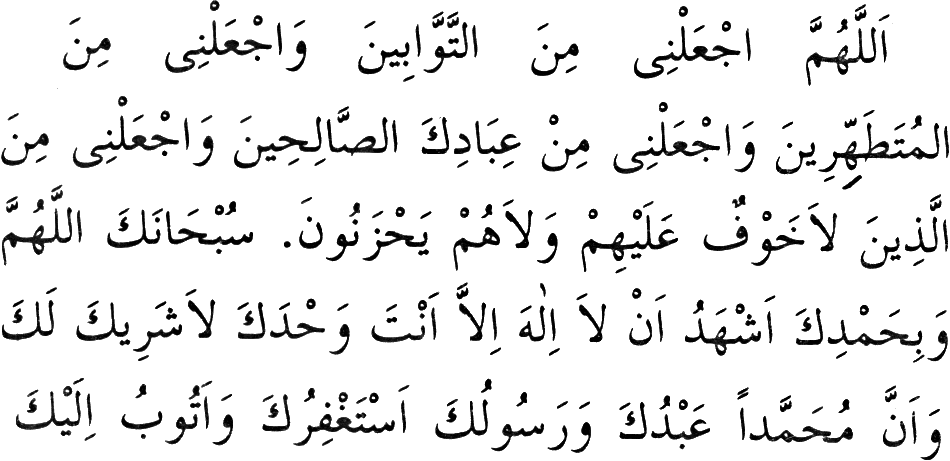 اَللَّهُمَّ اجْعَلْنِى مِنَ التَّوَّابِينَ وَاجْعَلْنِى مِنَ
المُتَطَهِّرِينَ وَاجْعَلْنِى مِنْ عِبَادِكَ الصَّالِحِينَ وَاجْعَلْنِى مِنَ
الَّذِينَ لاَخَوْفٌ عَلَيْهِمْ وَلاَهُمْ يَحْزَنُونَ. سُبْحَانَكَ اللَّهُمَّ
وَبِحَمْدِكَ اَشْهَدُ اَنْ لاَ اِلٰهَ اِلاَّ اَنْتَ وَحْدَكَ لاَشَرِيكَ لَكَ
وَاَنَّ مُحَمَّداً عَبْدُكَ وَرَسُولُكَ اَسْتَغْفِرُكَ وَاَتُوبُ اِلَيْكَ